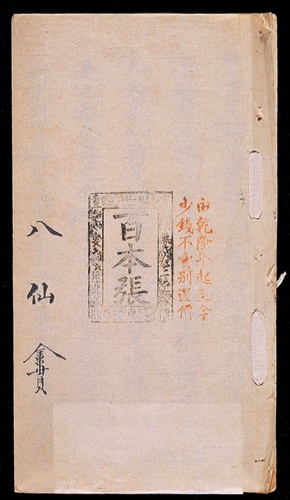 由乾隆年起至今
少錢不賣別還價
百本張
八仙